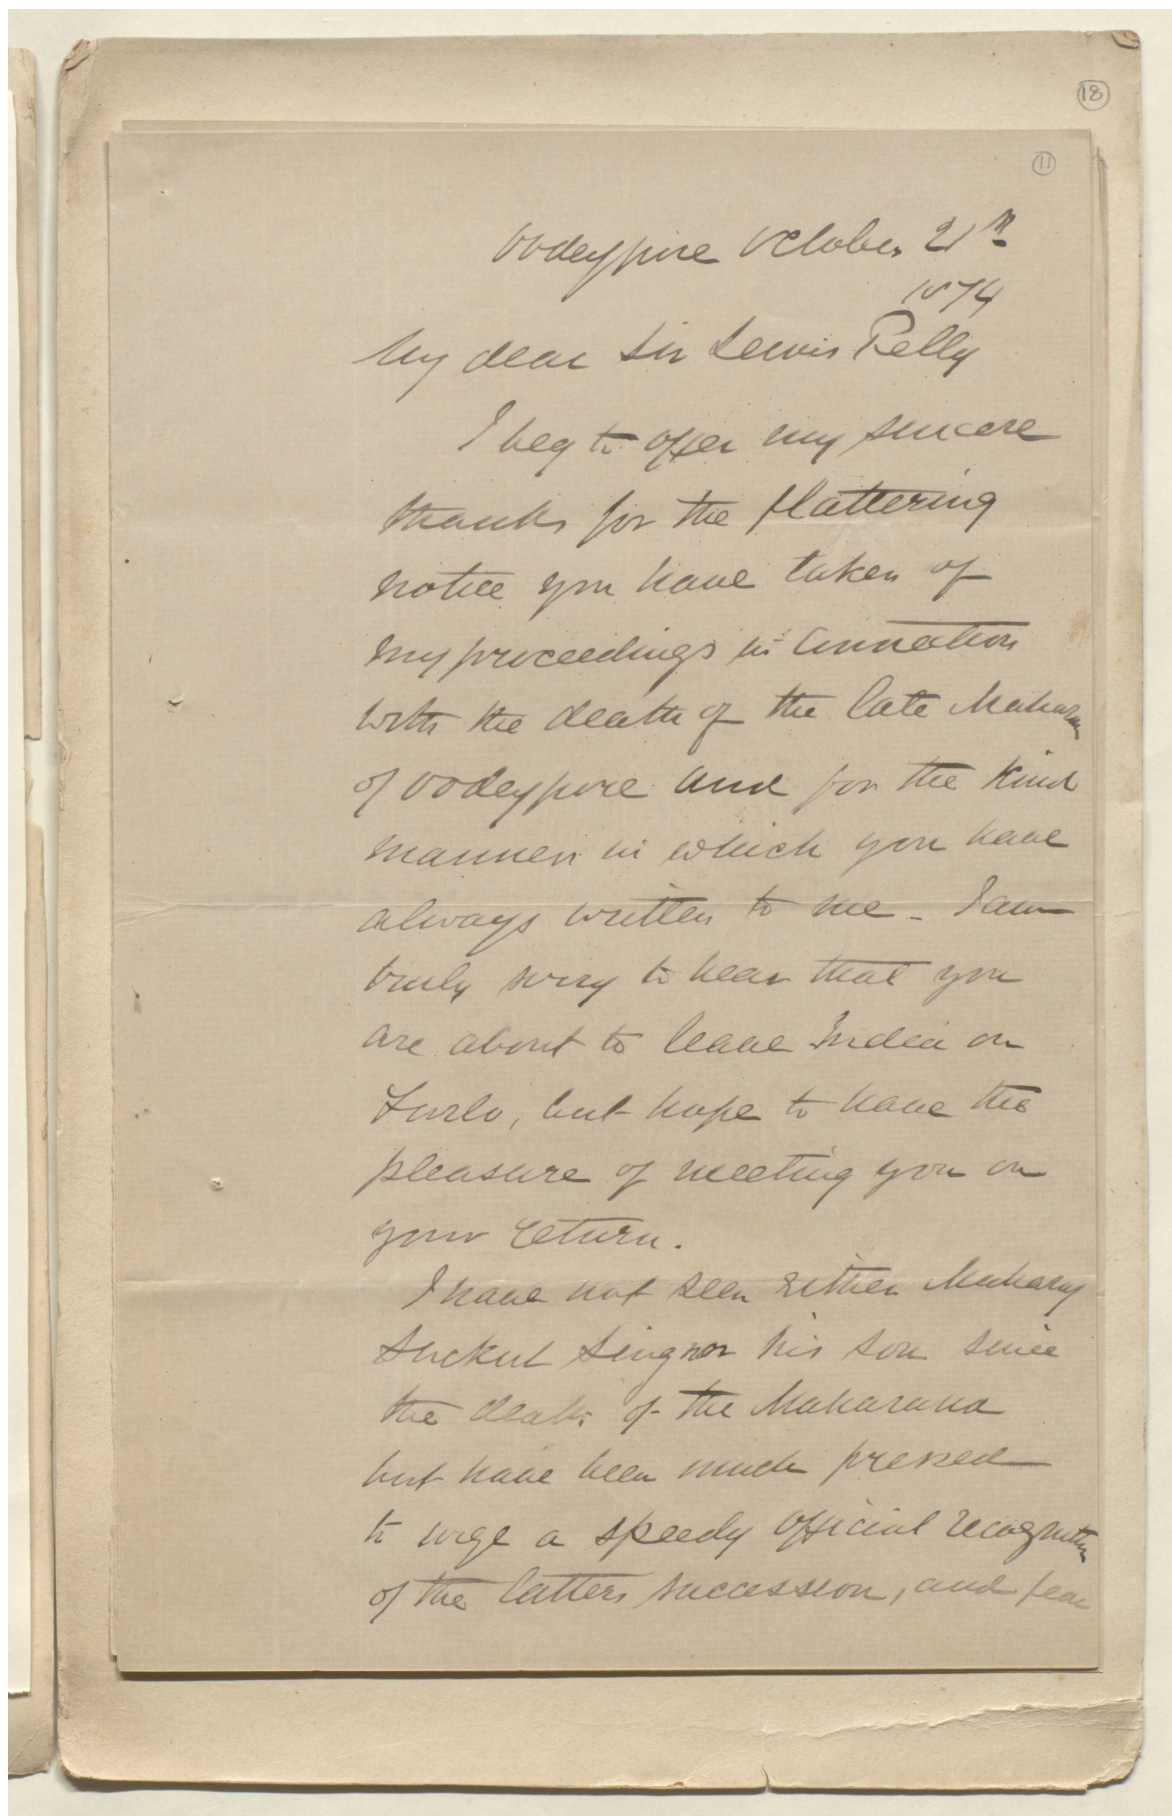 18
11
Oodeypore October 21st
1874
My dear Sir Lewis Pelly
I beg to offer my sincere
thanks for the flattering
notice you have taken of
my proceedings in connection
with the death of the late Maharana
of Oodeypore and for the kind
manner in which you have
always written to me - I am
truly sorry to hear that you
are about to leave India on
Furlo, but hope to have the
pleasure of meeting you on
your return.
I have not seen either Maharaj
Suckut Sing nor his son since
the death of the Maharana
but have been much pressed
to urge a speedy official recognition
of the latters succession, and fear